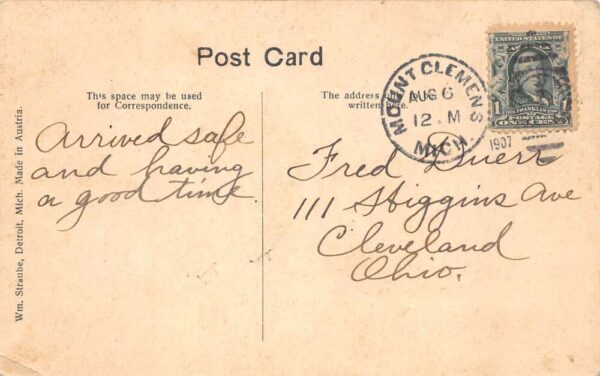 Post Card
This space may be used
for Correspondence.
The address only
written here.
MOUNT CLEMENS
AUG 6
12 M
MICH.
1907
UNITED STATES OF AMERICA
FRANKLIN
1 1
POSTAGE
ONE CENT
Arrived safe
and having
a good time.
Fred Duerr
111 Higgins Ave
Cleveland
Ohio.
Wm. Straube, Detroit, Mich. Made in Austria.